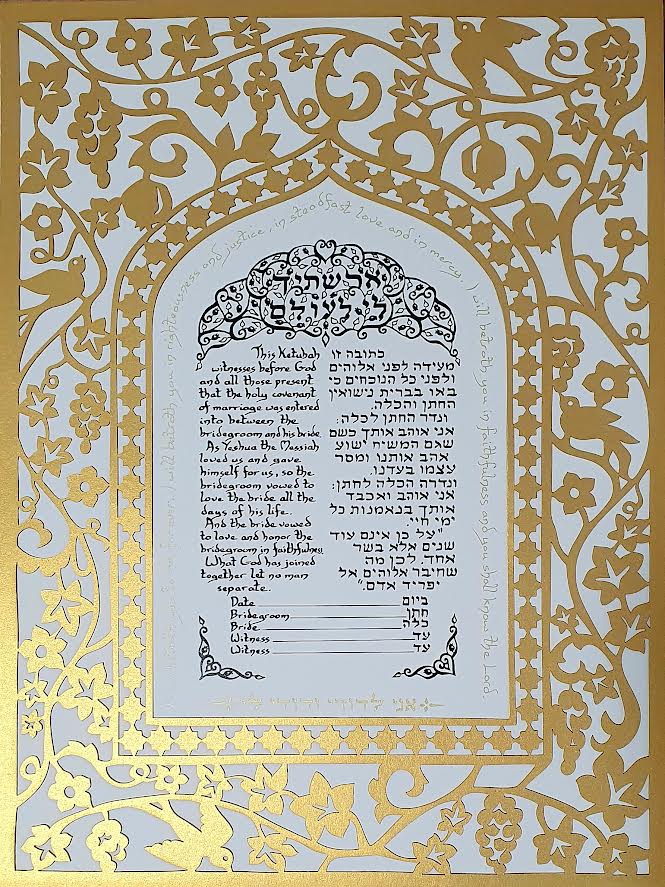 forever. I will betroth you in righteousness and justice, in steadfast love and in mercy. I will betroth you in faithfulness and you shall know the Lord.
ארשתיך
לי לעולם
This Ketubah
witnesses before God
and all those present
that the holy covenant
of marriage was entered
into between the
bridegroom and his bride.
As Yeshua the Messiah
loved us and gave
himself for us, so the
bridegroom vowed to
love the bride all the
days of his life.
And the bride vowed
to love and honor the
bridegroom in faithfulness
What God has joined
together let no man
separate.
כתובה זו
מעידה לפני אלוהים
ולפני כל הנוכחים כי
באו בברית נישואין
החתן והכלה.
ונדר החתן לכלה:
אני אוהב אותך כשם
שגם המשיח ישוע
אהב אותנו ומסר
עצמו בעדנו.
ונדרה הכלה לחתן:
אני אוהב ואכבד
אותך בנאמנות כל
ימי חיי.
"על כן אינם עוד
שנים אלא בשר
אחד. לכן מה
שחיבר אלוהים אל
יפריד אדם."
Date ביום
Bridegroom חתן
Bride כלה
Witness עד
Witness עד
אני לדודי ודודי לי